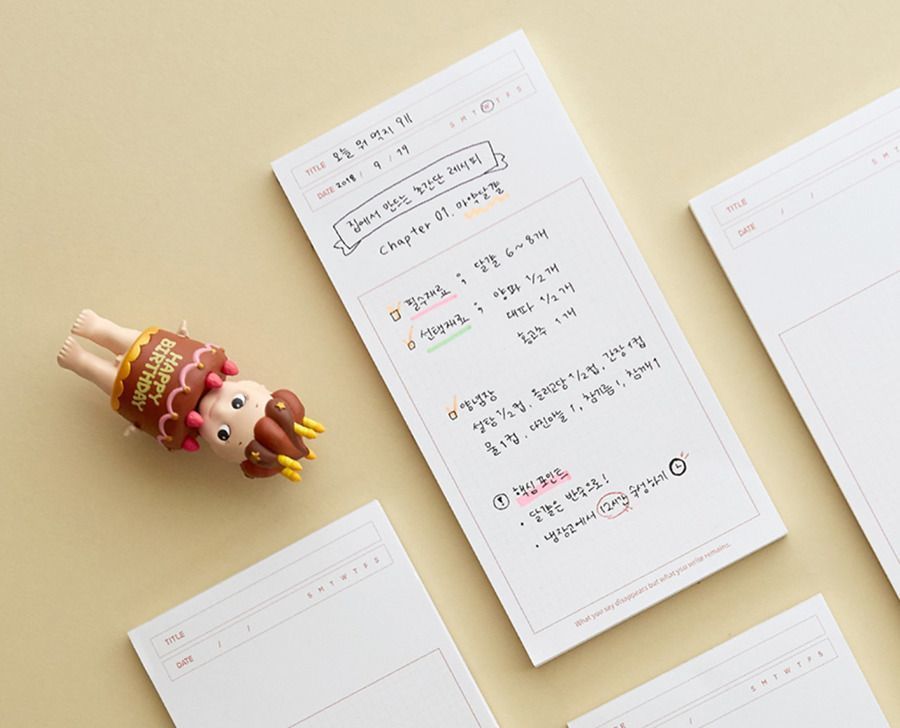 TITLE 오늘 뭐 먹지 9ㅐ
DATE 2018 / 9 / 19 S M T W T F S
집에서 만드는 초간단 레시피
Chapter 01. 마약달걀
필수재료 ; 달걀 6~8개
선택재료 ; 양파 1/2개
대파 1/2개
홍고추 1개
양념장
설탕 1/2컵, 올리고당 1/2컵, 간장 1컵
물 1컵, 다진마늘 1, 참기름 1, 참깨 1
핵심 포인트
· 달걀은 반숙으로!
· 냉장고에서 12시간 숙성하기
What you say disappears but what you write remains.
HAPPY
BIRTHDAY
TITLE
DATE / / S M T W T F S
TITLE
DATE / / S M
TITLE
S M T W T F S